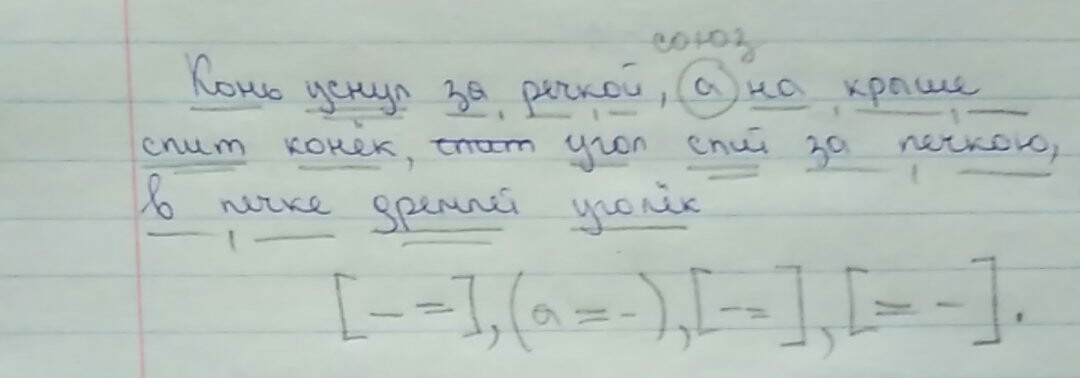 союз
Конь уснул за речкой, а на крыше
спит конёк, спит угол спит за печкою,
в печке дремлет уголёк
[– =], (а = –), [– =], [= –].